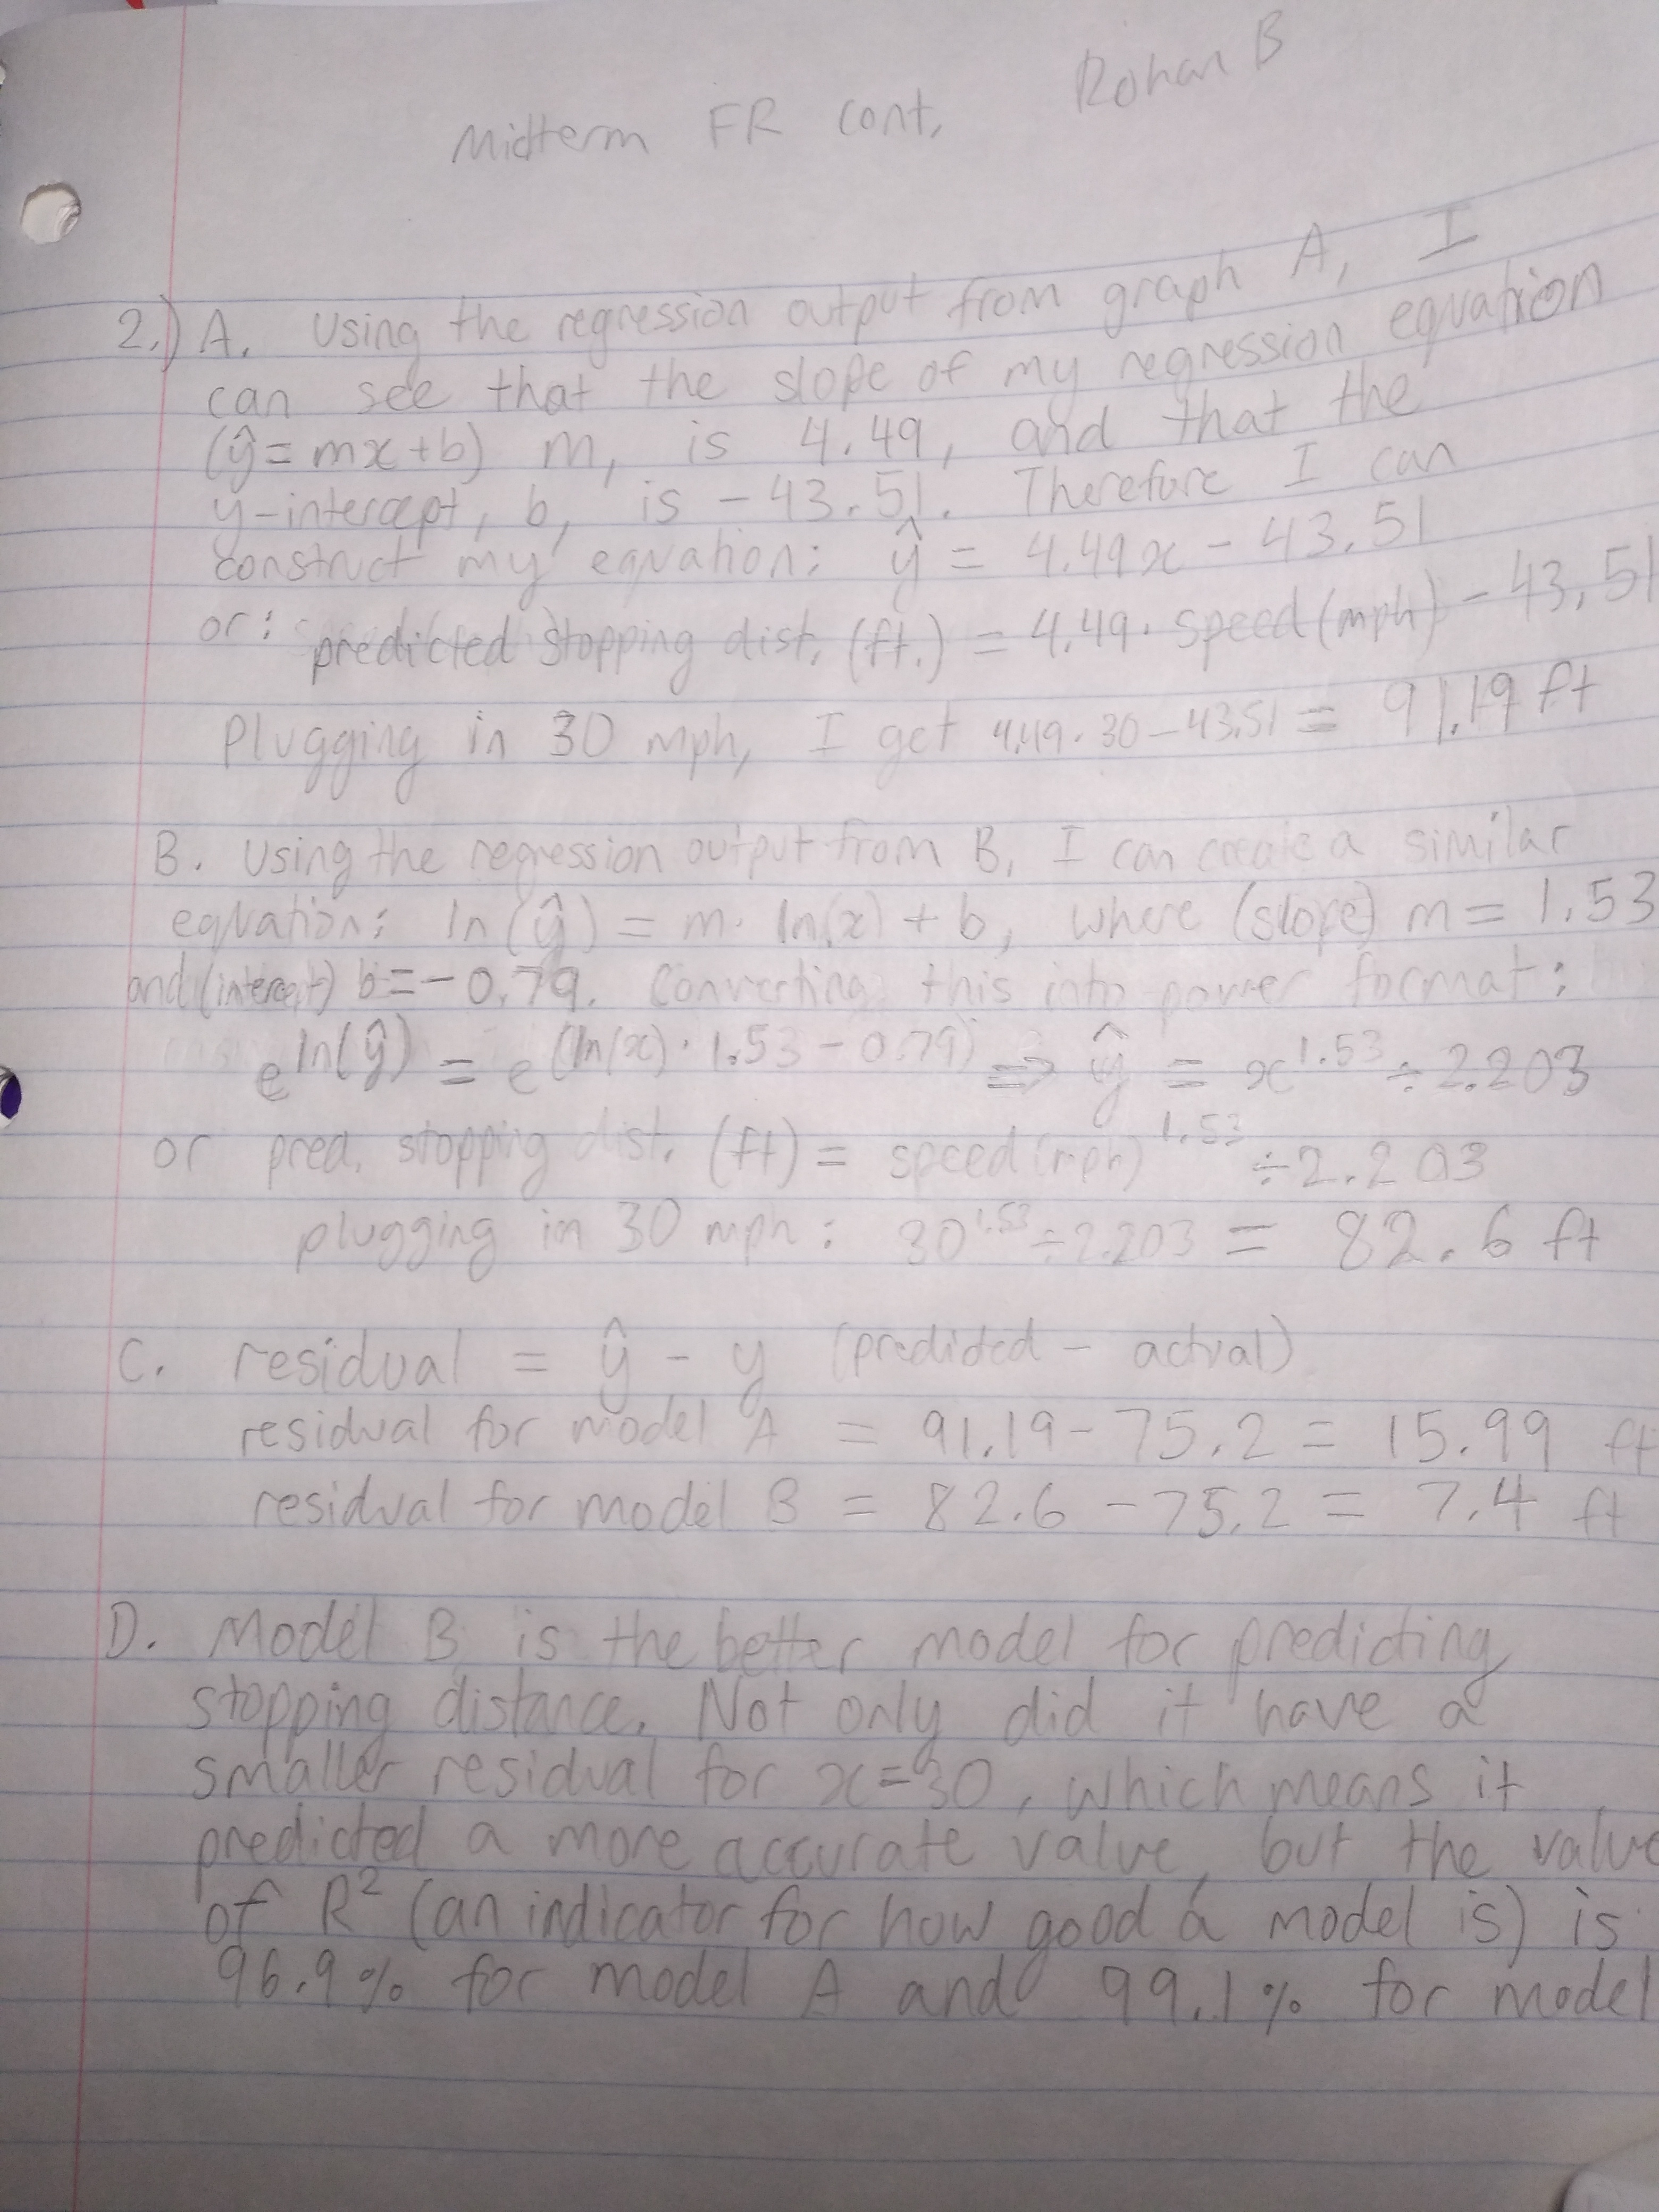 Midterm FR cont. Rohan B
2.) A. Using the regression output from graph A, I
can see that the slope of my regression equation
(ŷ = mx + b) m, is 4.49, and that the
y-intercept, b, is -43.51. Therefore I can
construct my equation: ŷ = 4.49x - 43.51
or: predicted stopping dist. (ft.) = 4.49 · speed (mph) - 43.51
Plugging in 30 mph, I get 4.49 · 30 - 43.51 = 91.19 ft
B. Using the regression output from B, I can create a similar
equation: ln(ŷ) = m · ln(x) + b, where (slope) m = 1.53
and (intercept) b = -0.79. Converting this into power format:
e^ln(ŷ) = e^(ln(x) · 1.53 - 0.79) => ŷ = x^1.53 ÷ 2.203
or pred. stopping dist. (ft) = speed (mph)^1.53 ÷ 2.203
plugging in 30 mph: 30^1.53 ÷ 2.203 = 82.6 ft
C. residual = ŷ - y (predicted - actual)
residual for model A = 91.19 - 75.2 = 15.99 ft
residual for model B = 82.6 - 75.2 = 7.4 ft
D. Model B is the better model for predicting
stopping distance. Not only did it have a
smaller residual for x=30, which means it
predicted a more accurate value, but the value
of R² (an indicator for how good a model is) is
96.9% for model A and 99.1% for model